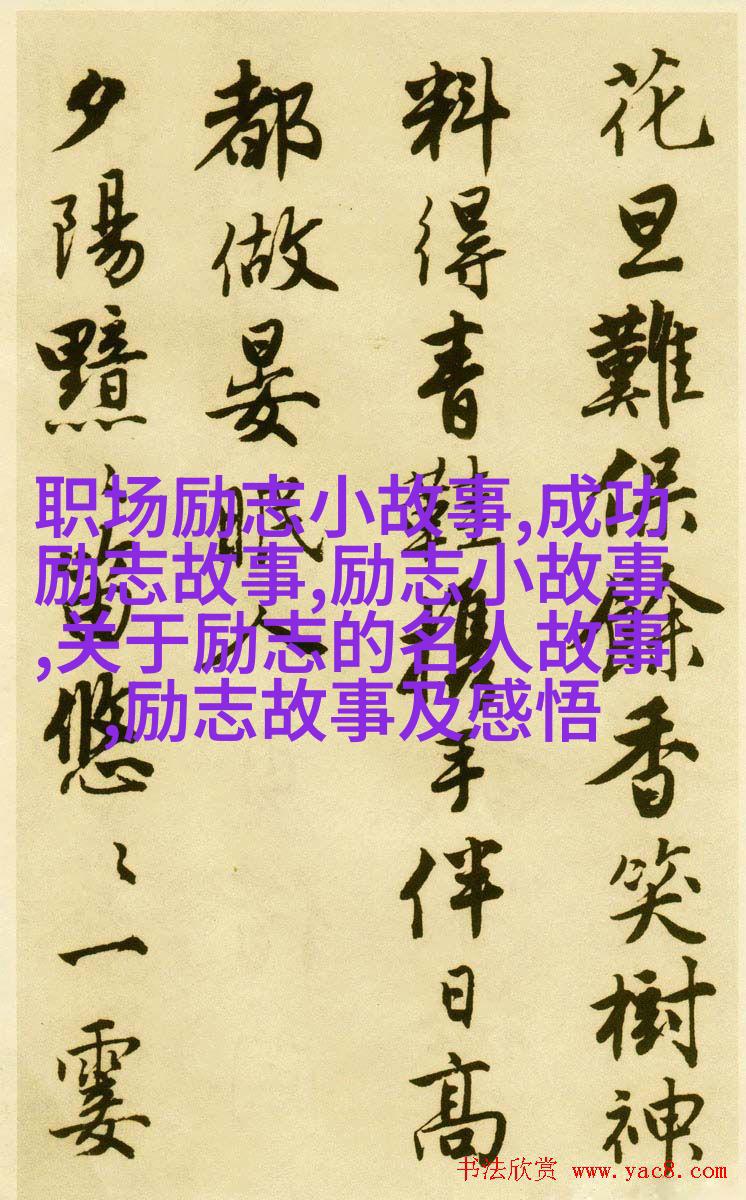 花旦難保餘香笑樹神
料得青鞋攜手伴日高
都做晏眠人
夕陽黯〻笛悠〻一霎
职场励志小故事,成功
励志故事,励志小故事
,关于励志的名人故事
,励志故事及感悟
书法欣赏 www.yac8.com